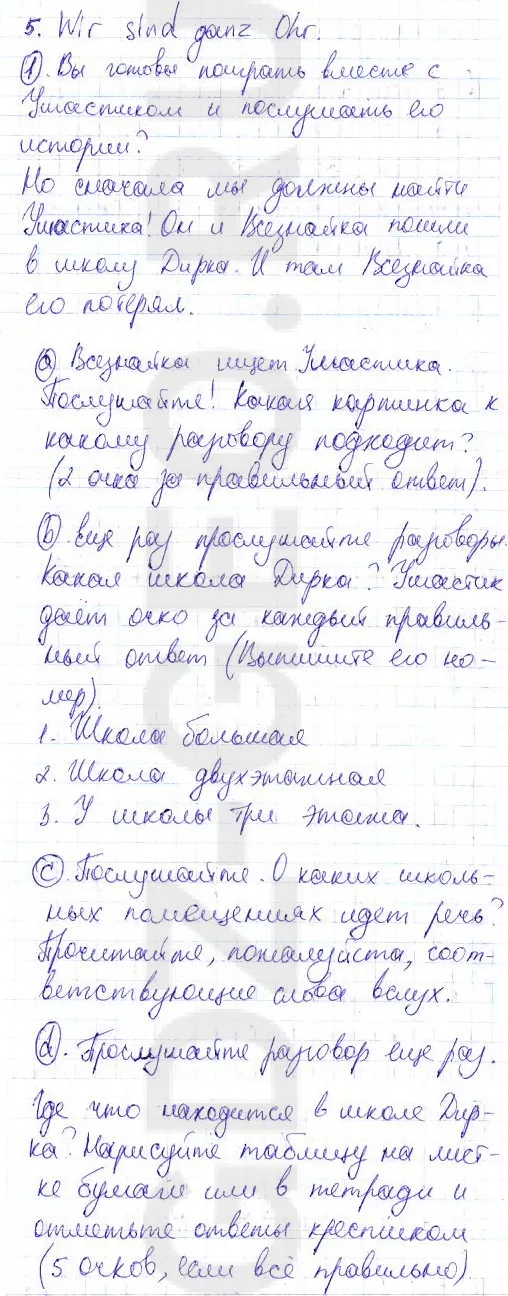 5. Wir sind ganz Ohr.
1. Вы готовы поиграть вместе с
Ушастиком и послушать его
истории?
Но сначала мы должны найти
Ушастика! Он и Всезнайка пошли
в школу Дирка. И там Всезнайка
его потерял.
a) Всезнайка ищет Ушастика.
Послушайте! Какая картинка к
какому разговору подходит?
(2 очка за правильный ответ).
b) Еще раз прослушайте разговоры.
Какая школа Дирка? Ушастик
даёт очко за каждый правиль-
ный ответ (Выпишите его но-
мер).
1. Школа большая
2. Школа двухэтажная
3. У школы три этажа.
c). Послушайте. О каких школь-
ных помещениях идет речь?
Прочитайте, пожалуйста, соот-
ветствующие слова вслух.
d). Прослушайте разговор еще раз.
Где что находится в школе Дир-
ка? Нарисуйте таблицу на лист-
ке бумаги или в тетради и
отметьте ответы крестиком
(5 очков, если всё правильно)
GDZ-GEO.RU